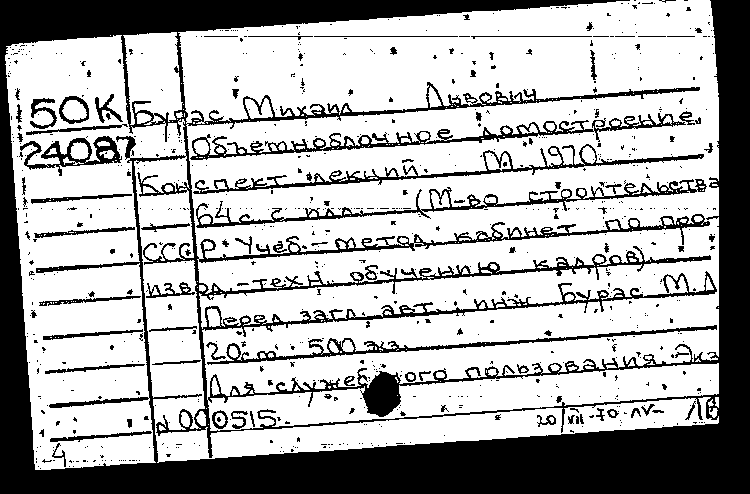 50К Бурас, Михаил Львович
24087 Объемноблочное домостроение.
Конспект лекций. М., 1970
64 с. с илл. (М-во строительства
СССР. Учеб.-метод. кабинет по про-
извод.-техн. обучению кадров).
Перед загл. авт.: инж Бурас М.Л
20 cm 500 экз.
Для служебного пользования. Экз
N 000515.
20/VII-70
4